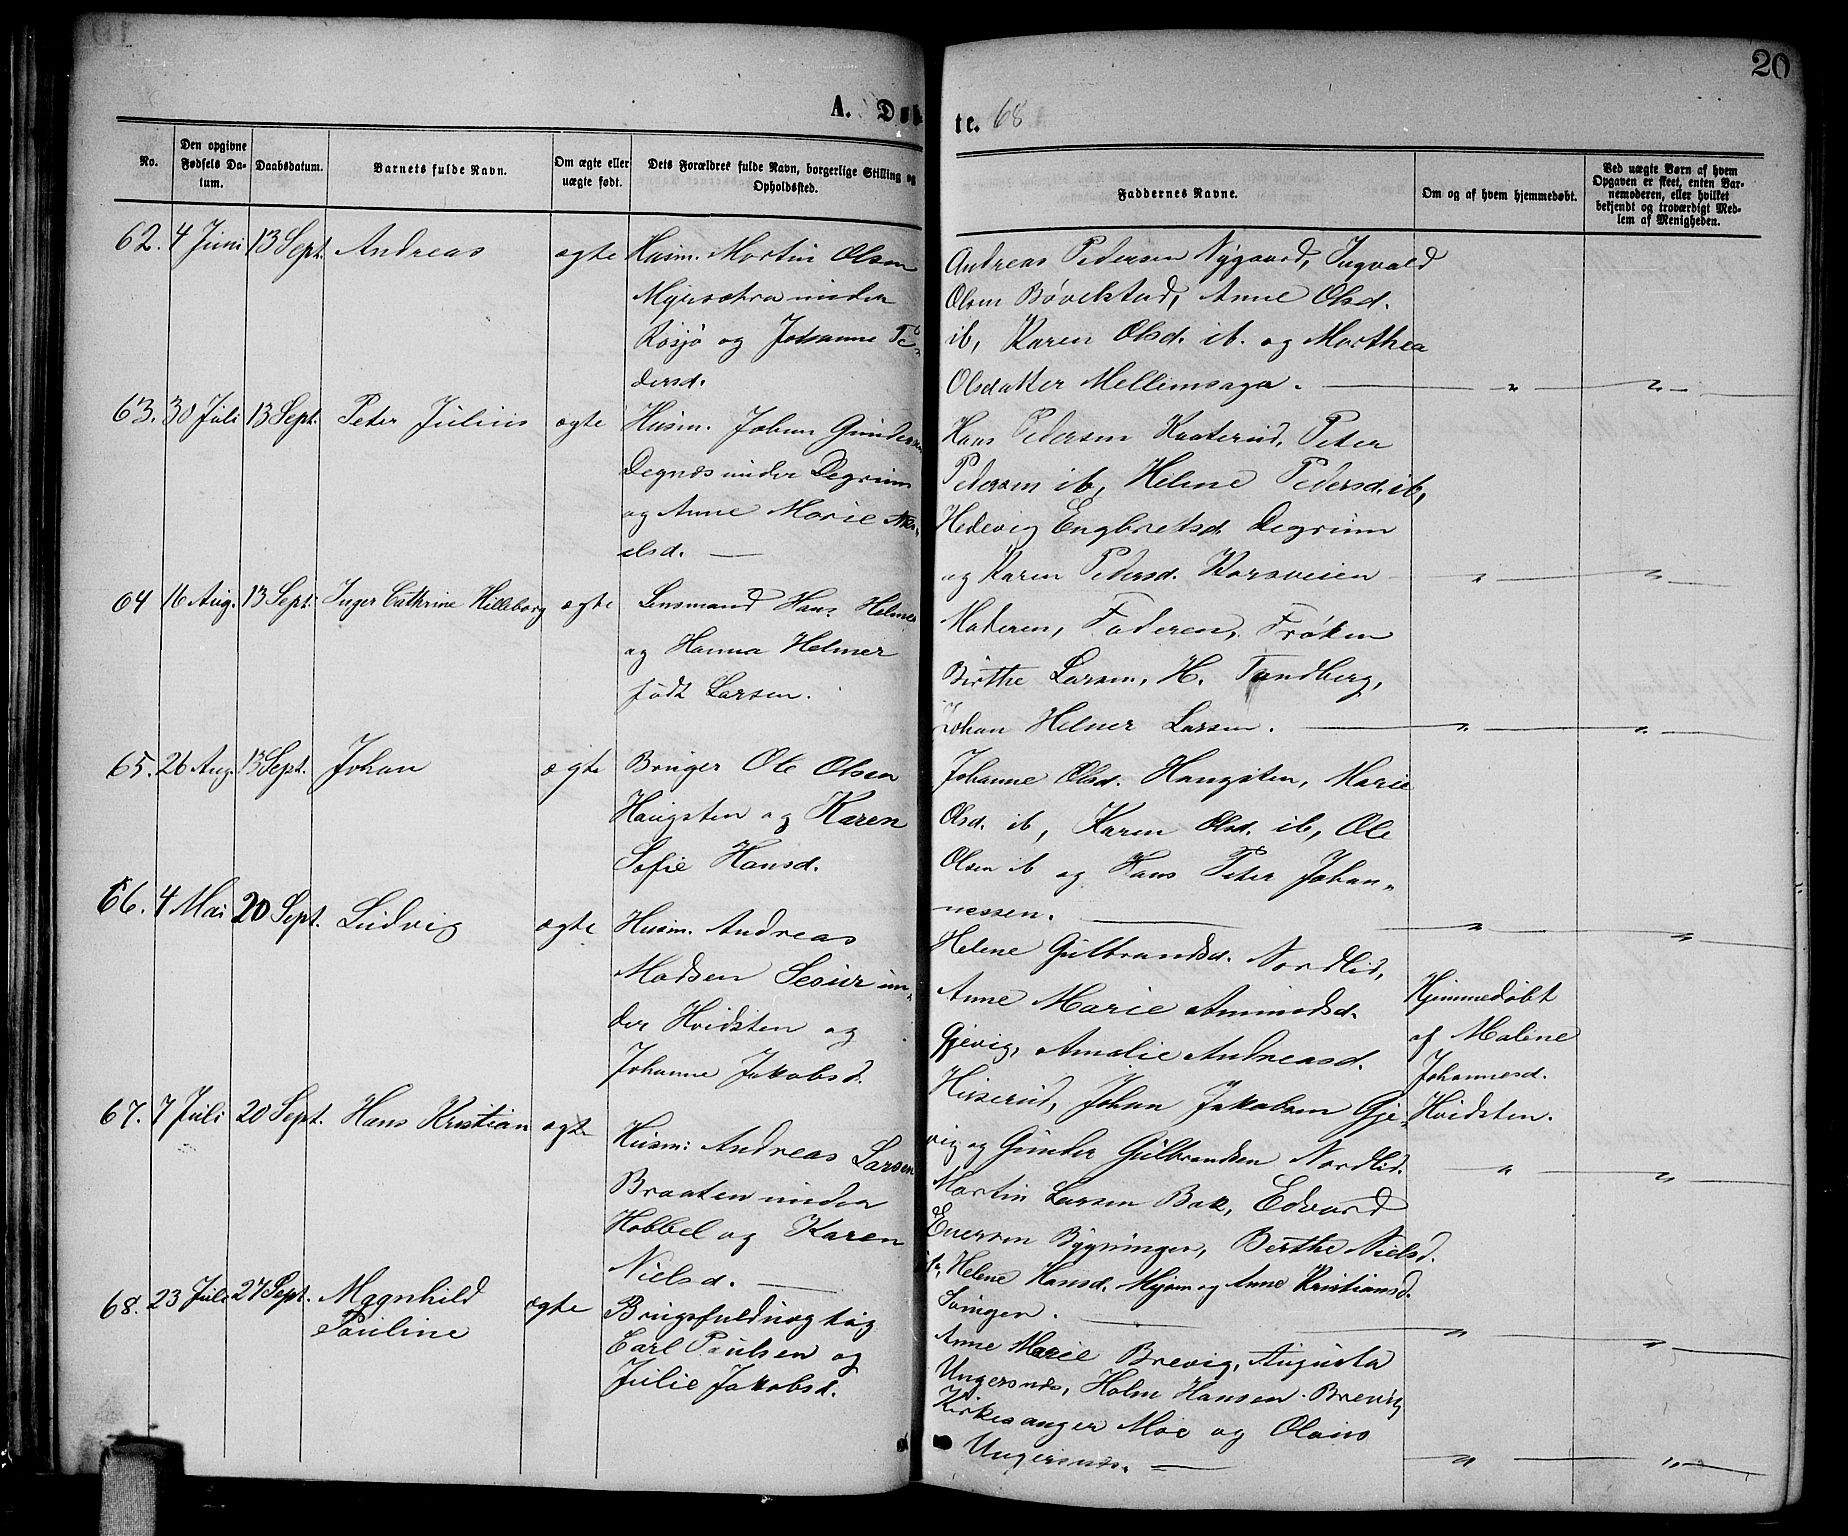 20
A. Døb
te. 68
No.
Den opgivne Fødsels Datum.
Daabsdatum.
Barnets fulde Navn.
Om ægte eller uægte født.
Dets Forældres fulde Navn, borgerlige Stilling og Opholdssted.
Faddernes Navne.
Om og af hvem hjemmedøbt.
Ved uægte Børn af hvem Opgaven er skeet, enten Barnemoderen, eller hvilket bekjendt og troværdigt Medlem af Menigheden.
62. 4 Juni 13 Sept. Andreas ægte
Husm. Martin Olsen
Myrsætra under
Røsjø og Johanne Pe-
dersd.
Andreas Pedersen Nygaard, Ingvald
Olsen Bøvelstad, Anne Olsd.
ib, Karen Olsd. ib. og Marthea
Olsdatter Mellemsaga. — " — " —
63. 30 Juli 13 Sept. Peter Julius ægte
Husm. Johan Gundersen
Degnæs under Degrum
og Anne Marie
elsd. —
Hans Pedersen Kaaterud, Peter
Pedersen ib, Helene Pedersd. ib,
Hedevig Engbretsd. Degrum
og Karen Pedersd. Korsveien — " — " —
64 16 Aug. 13 Sept. Inger Cathrine Hilleborg ægte
Lensmand Hans Helmer
og Hanna Helmer
født Larsen.
Moderen, Faderen, Frøken
Birthe Larsen, H. Tandberg,
Johan Helmer Larsen. — " — " —
65. 26 Aug. 13 Sept. Johan ægte
Bruger Ole Olsen
Haugsten og Karen
Sofie Hansd.
Johanne Olsd. Haugsten, Marie
Olsd. ib, Karen Olsd. ib, Ole
Olsen ib og Hans Peter Johan-
nessen. — " — " —
66. 4 Mai 20 Sept. Ludvig ægte
Husm. Andreas
Madsen un-
der Hvidsten og
Johanne Jakobsd.
Helene Gulbrandsd. Nordlid,
Anne Marie Amundsd.
Gjevig, Amalie Andreasd.
Hisserud, Johan Jakobsen Gje-
vig og Gunder Gulbrandsen Nordlid.
Hjemmedøbt
af Malene
Johannesd.
Hvidsten.
— " — " —
67. 7 Juli 20 Sept. Hans Kristian ægte
Husm: Andreas Larsen
Braaten under
Hobbel og Karen
Nielsd. —
Martin Larsen Bak, Edvard
Evensen Bygningen, Berthe Nielsd.
ib, Helene Hansd. Myom og Anne Kristiansd.
Svingen. — " — " —
68. 23 Juli 27 Sept. Magnhild ægte
Pauline
Brugsfuldmægtig
Carl Paulsen og
Julie Jakobsd.
Anne Marie Brevig, Augusta
Ungersnæs, Holm Hansen Brevig
Kirkesanger Moe og Olaus
Ungersnæs. — " — " —